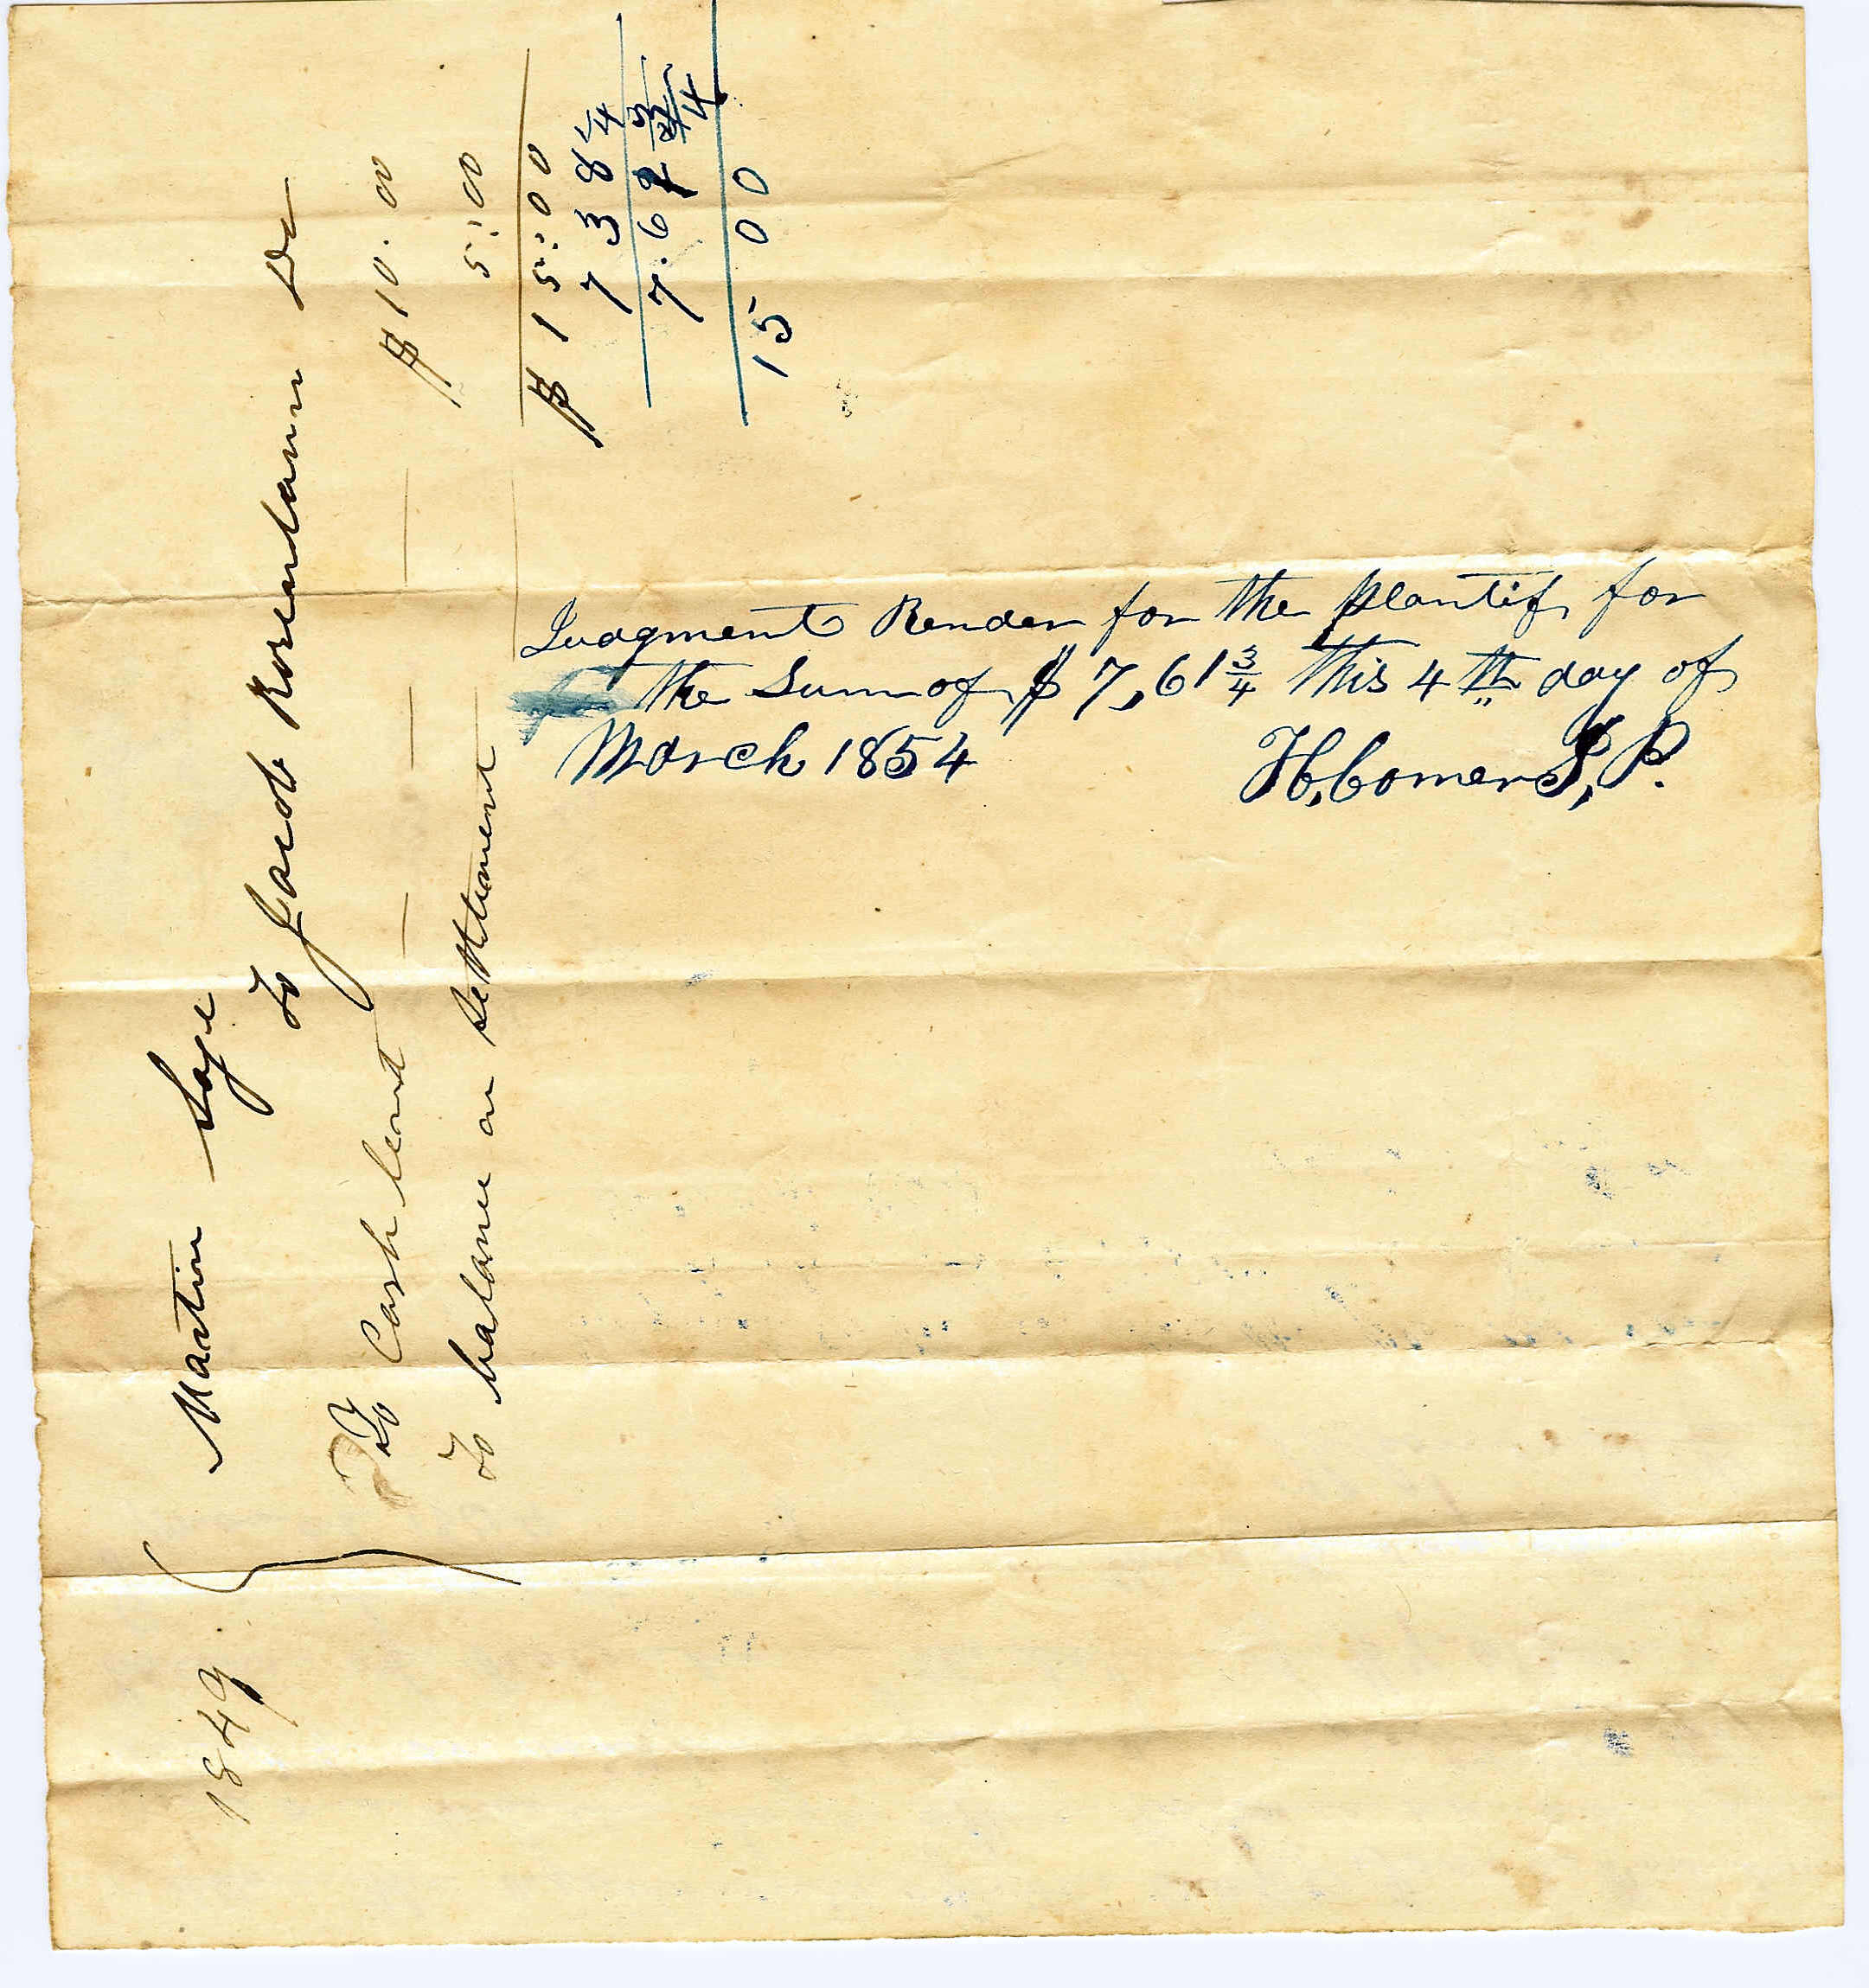 1849
Martin Sage
To Jacob Rosentann Dr
To Cash lent $10.00
To balance on settlement 5:00
$15:00
7 38 1/4
7.61 3/4
15 00
Judgment Render for the plantif for
the Sum of $7,61 3/4 this 4th day of
March 1854 H, Comer J, P.